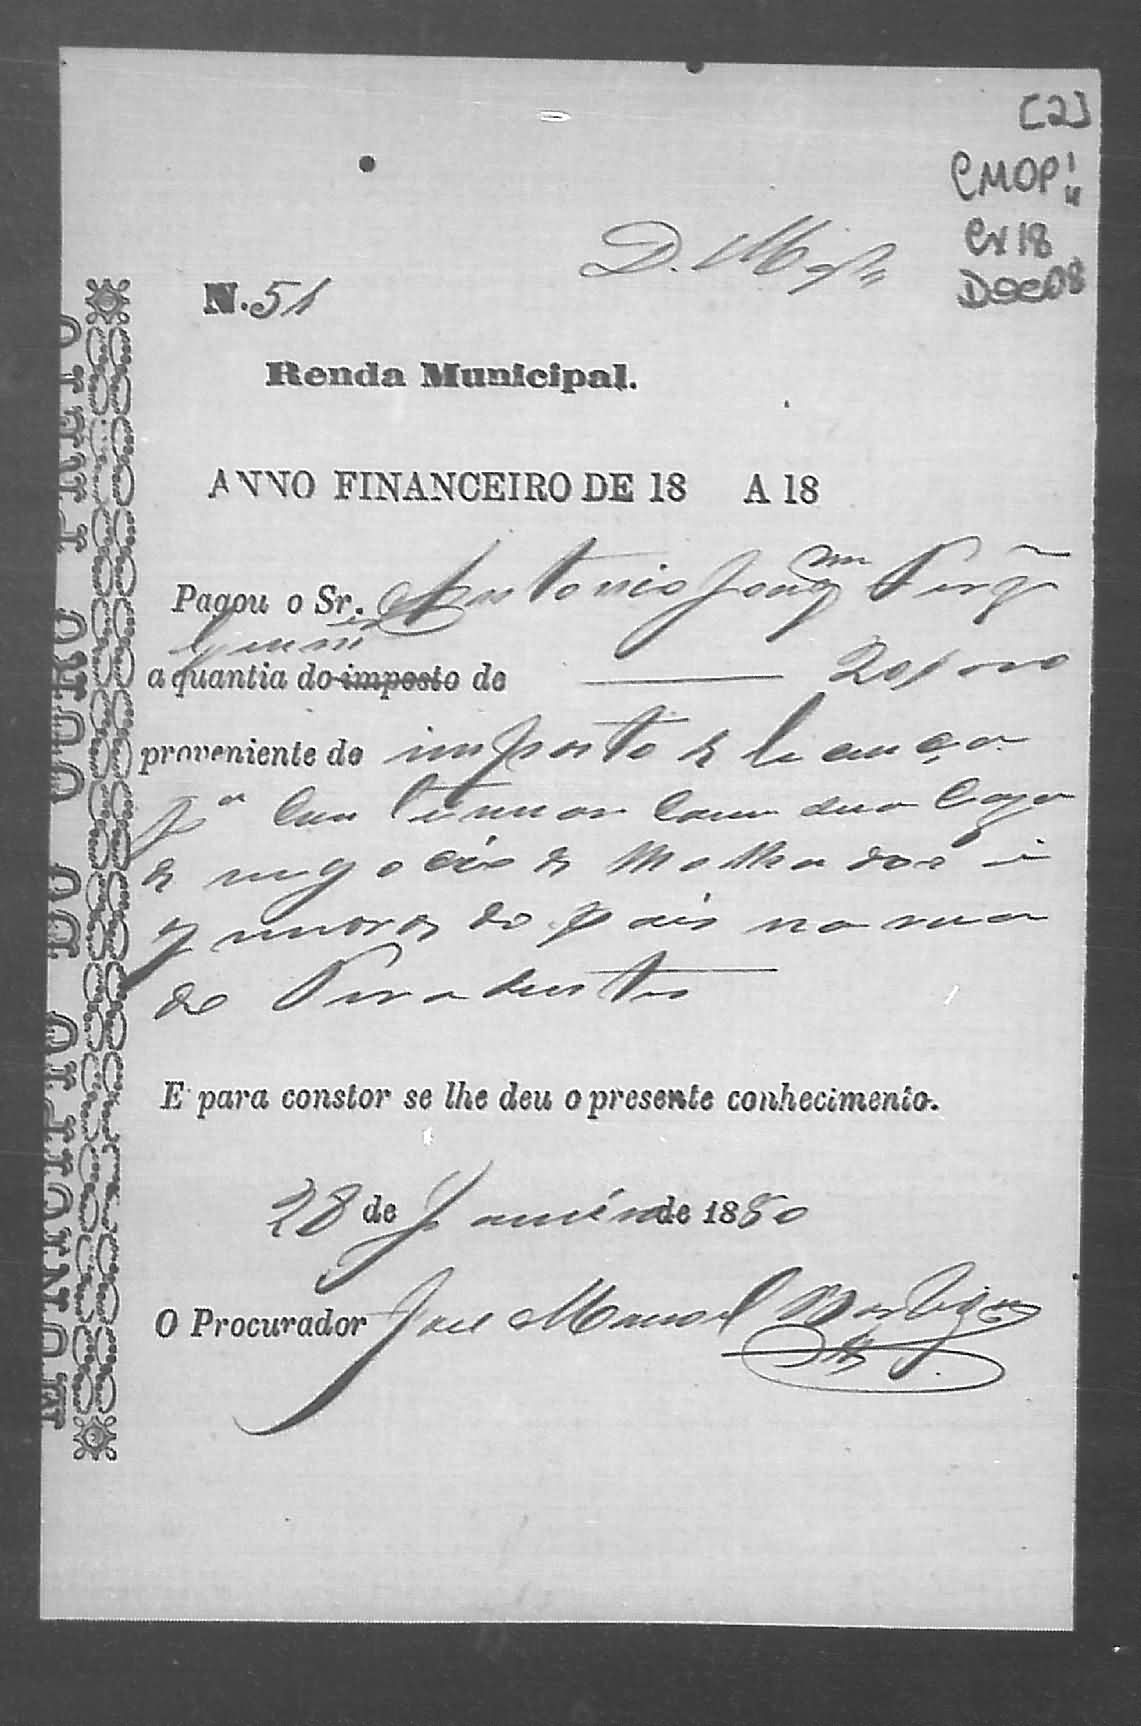 [2]
CMOP
Cx 18
Doc 08
D.
N. 51
Renda Municipal.
ANNO FINANCEIRO DE 18 A 18
Pagou o Sr. Antonio Joaqm
a quantia do imposto de 20$000
proveniente de imposto e licença
pa Continuar Com sua Caza
de negocio de Molhados e
generos do pais na rua
de Tiradentes
E para constor se lhe deu o presente conhecimento.
28 de Janeiro de 1880
O Procurador José Manoel